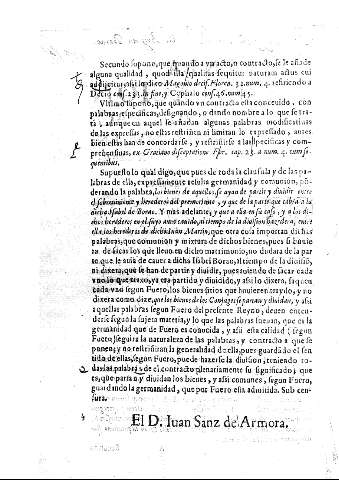 Secundo supono, que quando a vn acto, o contracto, se le añade
alguna qualidad, quod illa qualitas sequitur naturam actus cui
adijcitur, assi lo dixo Magonio decis. Floren. 32. num. 4. refiriendo a
Decio cons. 233. in fin. y Cephalo cons. 46. num. 45.
Vltimo supono, que quando vn contracto està concebido, con
palabras especificas, designando, o dando nombre a lo que se tra-
ta, aunque en aquel se añadan algunas palabras modificatiuas
de las expressas, no estas restriñen ni limitan lo expressado, antes
bien estas han de concordarse, y restriñirse a las especificas y com-
prehensiuas, ex Graciano disceptatione For. cap. 23. a num. 4. cum se-
quentibus.
Supuesto lo qual digo, que pues de toda la clausula y de las pa-
labras de ella, expressamente resulta germanidad y comunion, po-
derando la palabra, los bienes de aquellos, se ayan de partir y diuidir entre
el sobreuiuiente y herederos del premoriente, y que de la parte que cabrà a la
dicha Isabel de Boras. Y mas adelante, y que a
los herederos de dicho Iuan Martin, que otra cosa importan dichas
palabras, que comunion y mixtura de dichos bienes, pues si huuie
ra de sacar los que lleuò en dicho matrimonio, no dudara de la par
te que le auia de caber a dicha Isabel Boras, al tiempo de la diuisiō,
ni dixera, que se han de partir y diuidir, pues auiendo de sacar cada
vno lo que traxo, ya era partido y diuidido, y assi lo dixera, saquen
cada vno segun Fuero, los bienes sitios que huuieren traydo, y no
dixera como dize, que los bienes de los Conjuges se partan y diuidan, y assi
aquellas palabras segun Fuero del presente Reyno, deuen enten-
derse segun la sujeta materia, y lo que las palabras suenan, que es la
germanidad que de Fuero es conocida, y assi esta calidad (segun
Fuero) seguira la naturaleza de las palabras, y contracto a que se
ponen, y no restriñirà la generalidad de ella, pues guardādo el sen
tido de ellas, segun Fuero, puede hazerse la diuision, teniendo to-
das las palabras de el contracto plenariamente su significado, que es
que partan y diuidan los bienes, y assi comunes, segun Fuero,
guardando la germanidad, que por Fuero està admitida. Sub cen-
sura.
El D. Juan Sanz de Armora.